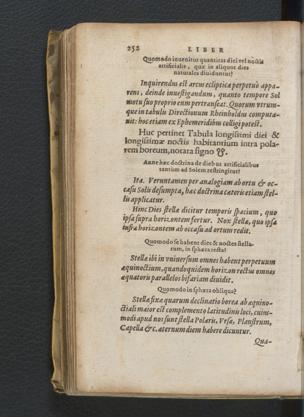 252 LIBER
Quomodo inuenitur quantitas diei vel noctis
artificialis, quæ in aliquot dies
naturales diuiduntur?
Inquirendus est arcus eclipticæ perpetuò appa-
rens, deinde inuestigandum, quanto tempore Sol
motu suo proprio eum pertranseat. Quorum vtrum-
que in tabulis Directionum Rheinholdus computa-
uit: hoc etiam ex Ephemeridibus colligi potest.
Huc pertinet Tabula longissimi diei &
longissimæ noctis habitantium intra pola-
rem boreum, notata signo
Anne hæc doctrina de diebus artificialibus
tantùm ad Solem restringitur?
Ita. Veruntamen per analogiam ab ortu & oc-
casu Solis desumpta, hæc doctrina cæteris etiam stel-
lis applicatur.
Hinc Dies stellæ dicitur temporis spacium, quo
ipsa supra horizontem fertur. Nox stellæ, quo ipsa
infra horizontem ab occasu ad ortum redit.
Quomodo se habent dies & noctes stella-
rum, in sphæra recta?
Stellæ ibi in vniuersum omnes habent perpetuum
æquinoctium, quandoquidem horizon rectus omnes
æquatoris parallelos bifariam diuidit.
Quomodo in sphæra obliqua?
Stellæ fixæ quarum declinatio borea ab æquino-
ctiali maior est complemento latitudinis loci, cuius-
modi apud nos sunt stella Polaris, Vrsæ, Plaustrum,
Capella &c. æternum diem habere dicuntur.
Qua-